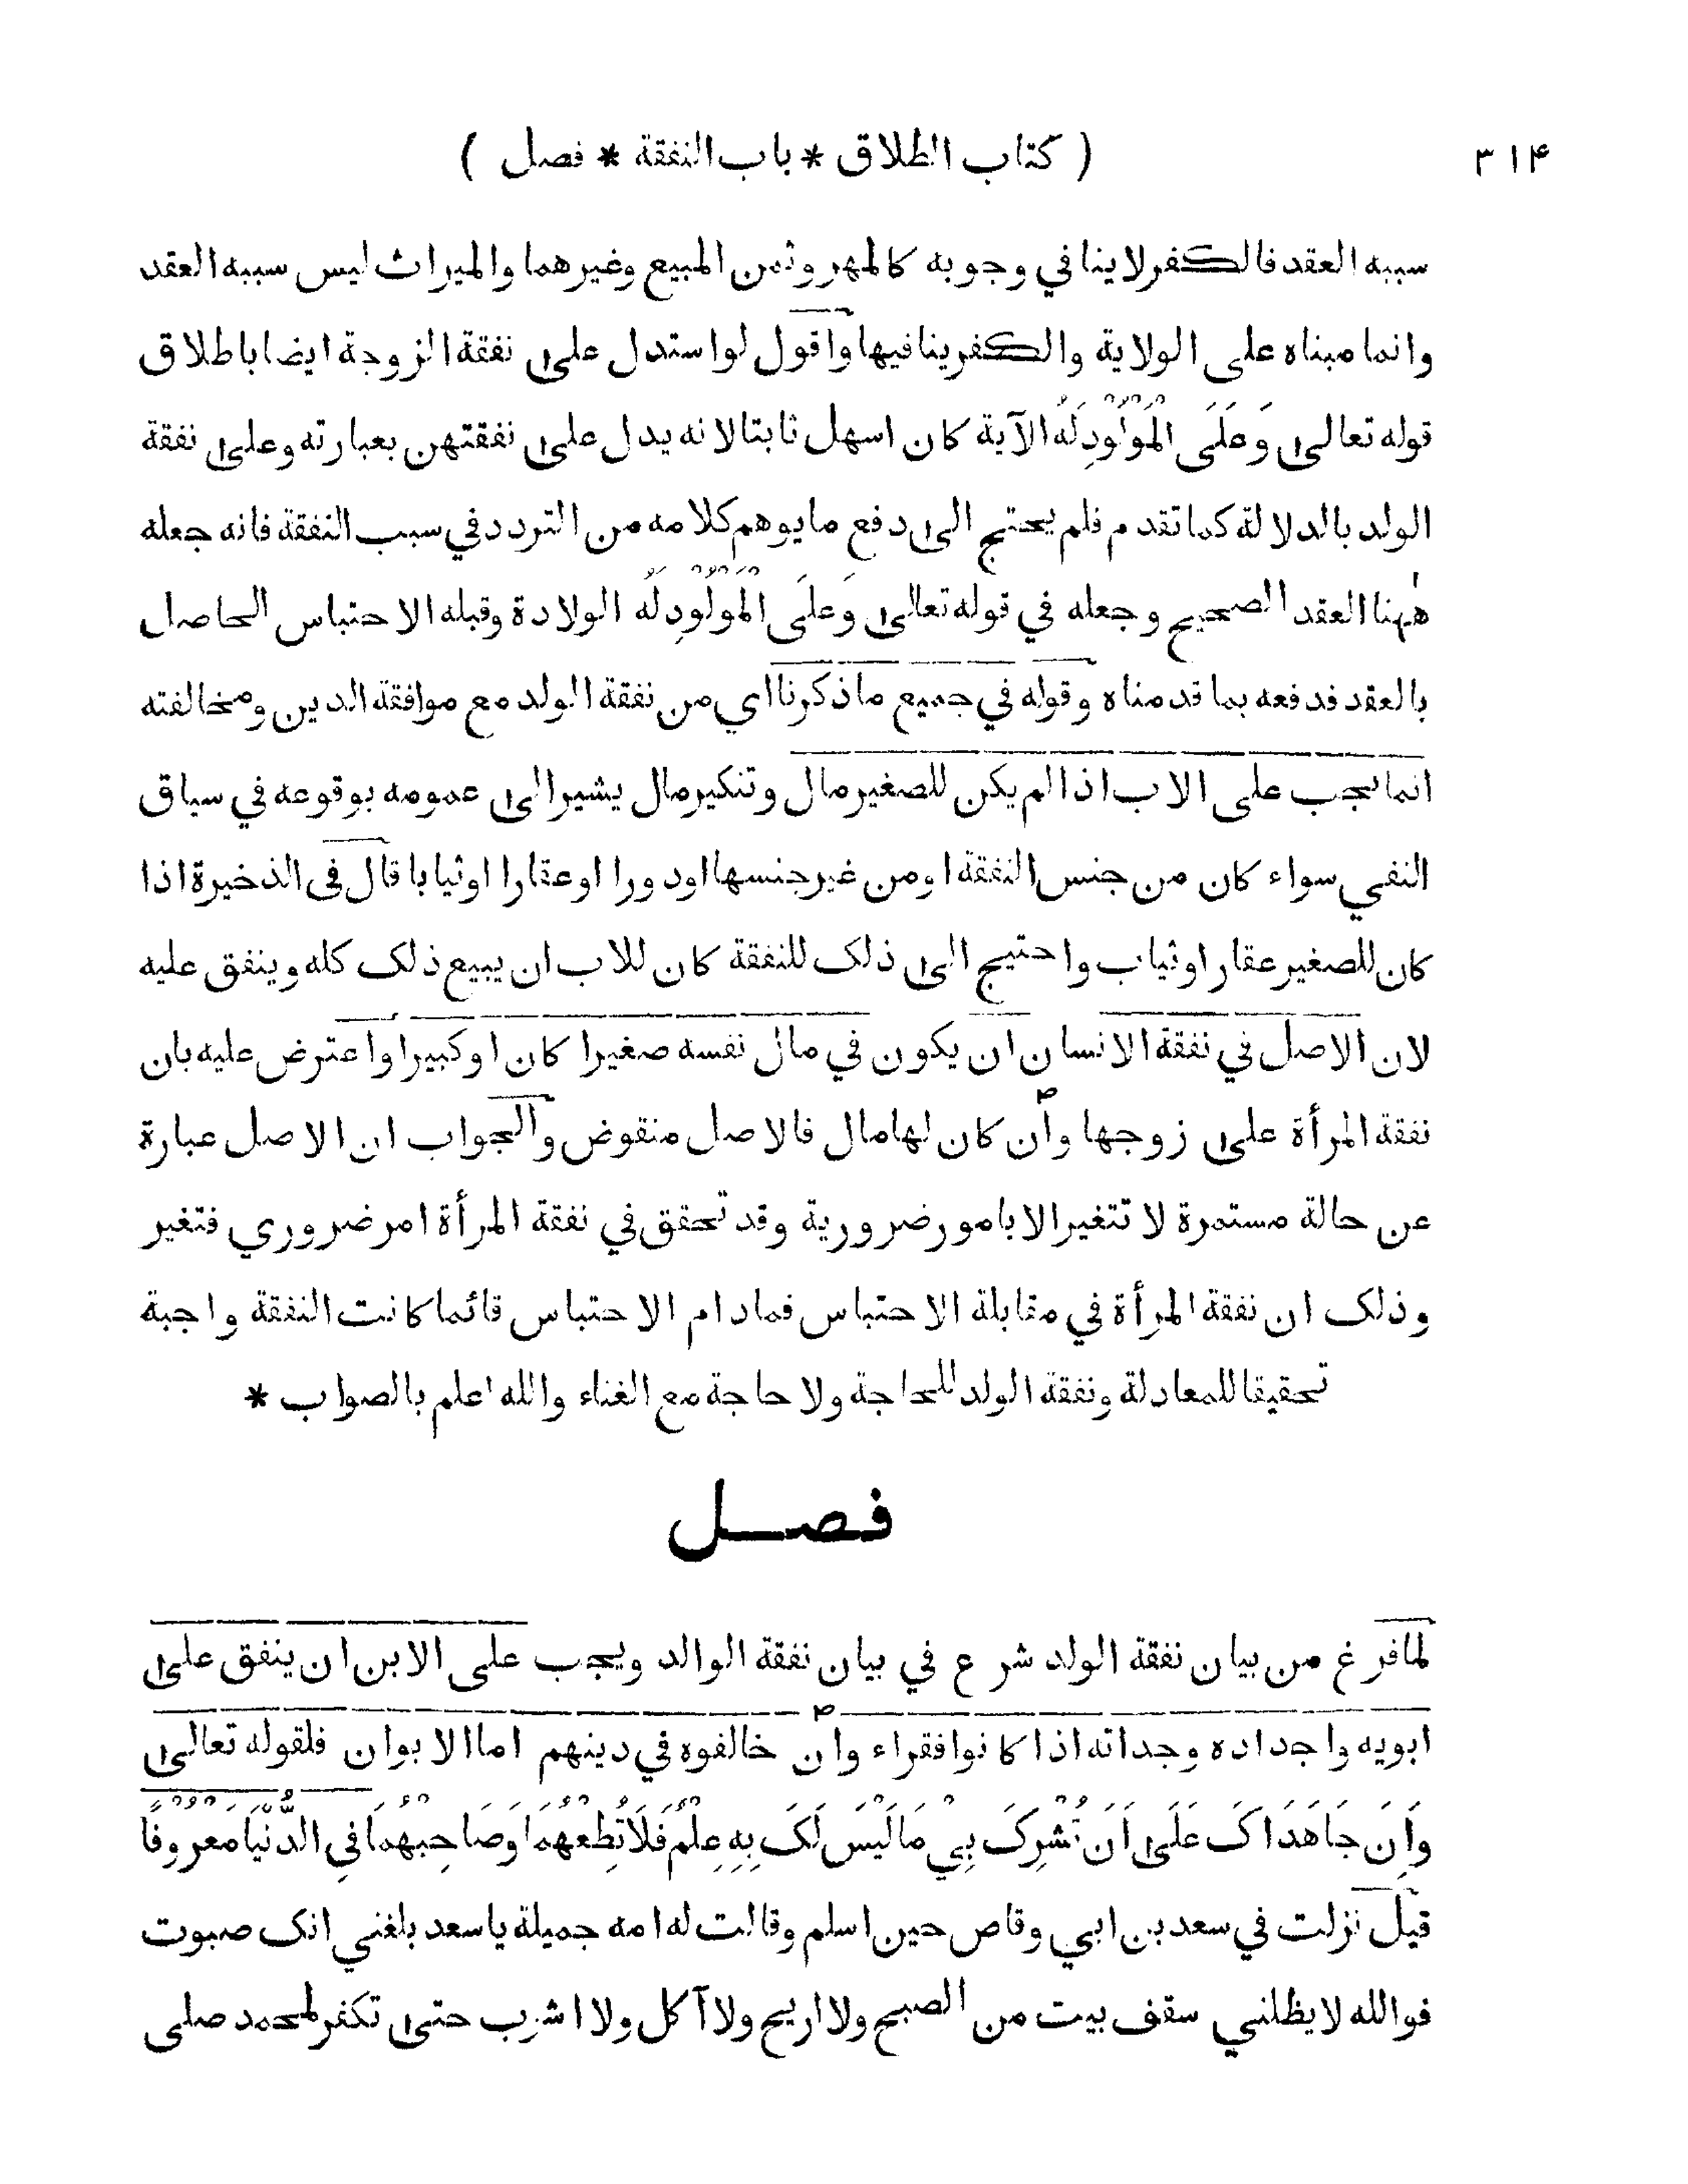 ٣١۴ ( كتاب الطلاق * باب النفقة * فصل )
سببه العقد فالكفر لا ينافي وجوبه كالمهر وثمن المبيع وغيرهما والميراث ليس سببه العقد
وانما مبناه على الولاية والكفر ينافيها واقول لو استدل على نفقة الزوجة ايضا باطلاق
قوله تعالى وَعَلَى الْمَوْلُوْدِ لَهُ الآية كان اسهل تابتا لانه يدل على نفقتهن بعبارته وعلى نفقة
الولد بالدلالة كما تقدم فلم يحتج الى دفع ما يوهم كلامه من التردد في سبب النفقة فانه جعله
هٰهنا العقد الصحيح وجعله في قوله تعالى وَعَلَى الْمَوْلُوْدِ لَهُ الولادة وقبله الاحتباس الحاصل
بالعقد فدفعه بما قدمناه وقوله في جميع ما ذكرنا اي من نفقة الولد مع موافقة الدين ومخالفته
انما يجب على الاب اذا لم يكن للصغير مال وتنكير مال يشير الى عمومه بوقوعه في سياق
النفي سواء كان من جنس النفقة او من غير جنسها او دورا او عقارا او ثيابا قال فى الذخيرة اذا
كان للصغير عقار او ثياب واحتيج الى ذلک للنفقة كان للاب ان يبيع ذلک كله وينفق عليه
لان الاصل في نفقة الانسان ان يكون في مال نفسه صغيرا كان او كبيرا واعترض عليه بان
نفقة المرأة على زوجها وان كان لها مال فالاصل منقوض والجواب ان الاصل عبارة
عن حالة مستمرة لا تتغير الا بامور ضرورية وقد تحقق في نفقة المرأة امر ضروري فتغير
وذلک ان نفقة المرأة في مقابلة الاحتباس فمادام الاحتباس قائما كانت النفقة واجبة
تحقيقا للمعادلة ونفقة الولد للحاجة ولا حاجة مع الغناء والله اعلم بالصواب *
فصل
لما فرغ من بيان نفقة الولد شرع في بيان نفقة الوالد ويجب على الابن ان ينفق على
ابويه واجداده وجداته اذا كانوا فقراء وان خالفوه في دينهم اما الابوان فلقوله تعالى
وَاِنَ جَاهَدَاكَ عَلَى اَنَ تُشْرِکَ بِيْ مَا لَيْسَ لَکَ بِهِ عِلْمٌ فَلَا تُطِعْهُمَا وَصَاحِبْهُمَا فِي الدُّنْيَا مَعْرُوْفًا
قيل نزلت في سعد بن ابي وقاص حين اسلم وقالت له امه جميلة يا سعد بلغني انک صبوت
فوالله لا يظلني سقف بيت من الصبح ولا اريح ولا آكل ولا اشرب حتى تكفر لمحمد صلى